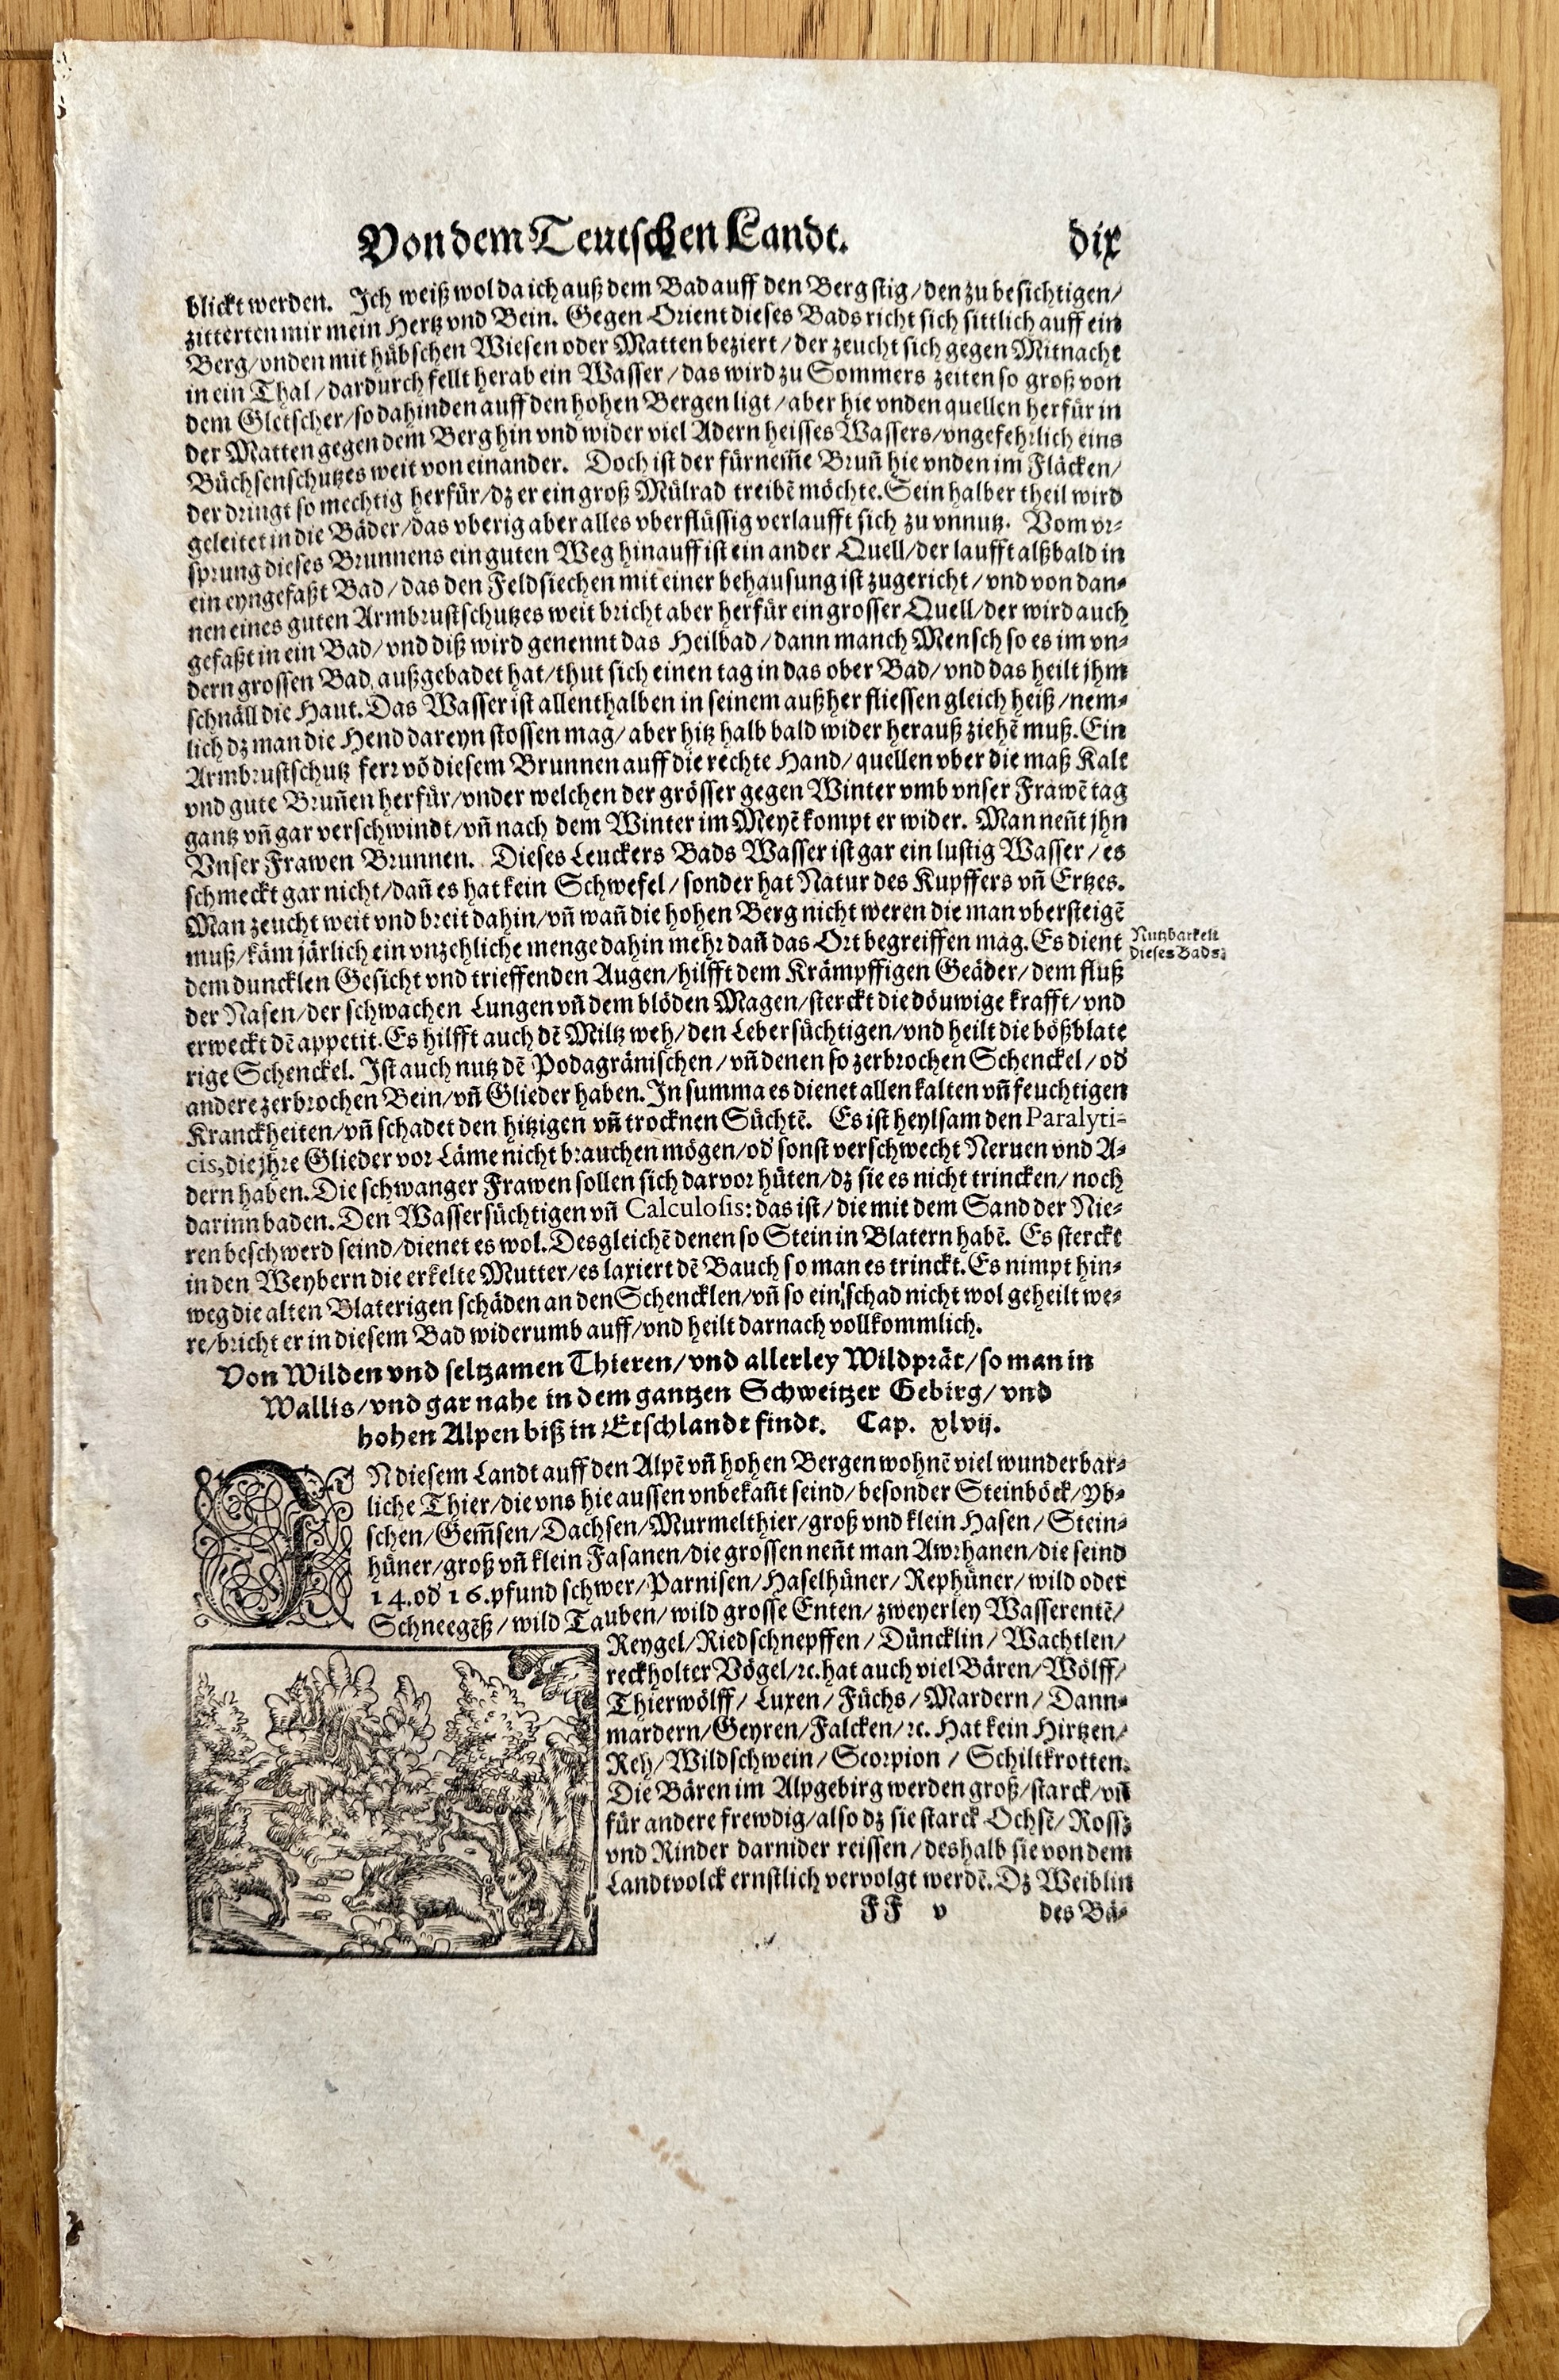 Von dem Teutschen Landt. dix
blickt werden. Ich weiß wol da ich auß dem Bad auff den Berg stig/den zu besichtigen/
zitterten mir mein Hertz vnd Bein. Gegen Orient dieses Bads richt sich sittlich auff ein
Berg/vnden mit hübschen Wiesen oder Matten beziert/der zeucht sich gegen Mitnacht
in ein Thal/dardurch fellt herab ein Wasser/das wird zu Sommers zeiten so groß von
dem Gletscher/so dahinden auff den hohen Bergen ligt/aber hie vnden quellen herfür in
der Matten gegen dem Berg hin vnd wider viel Adern heisses Wassers/vngefehrlich eins
Büchsenschutzes weit von einander. Doch ist der fürnem̃e Brun̄ hie vnden im Fläcken/
der dringt so mechtig herfür/dz er ein groß Mülrad treibē möchte. Sein halber theil wird
geleitet in die Bäder/das vberig aber alles vberflüssig verlaufft sich zu vnnutz. Vom vr⸗
sprung dieses Brunnens ein guten Weg hinauff ist ein ander Quell/der laufft alßbald in
ein eyngefaßt Bad/das den Feldsiechen mit einer behausung ist zugericht/vnd von dan⸗
nen eines guten Armbrustschutzes weit bricht aber herfür ein grosser Quell/der wird auch
gefaßt in ein Bad/vnd diß wird genennt das Heilbad/dann manch Mensch so es im vn⸗
dern grossen Bad außgebadet hat/thut sich einen tag in das ober Bad/vnd das heilt jhm
schnäll die Haut. Das Wasser ist allenthalben in seinem außher fliessen gleich heiß/nem⸗
lich dz man die Hend dareyn stossen mag/aber hitz halb bald wider herauß ziehē muß. Ein
Armbrustschutz ferr vō diesem Brunnen auff die rechte Hand/quellen vber die maß Kalt
vnd gute Brun̄en herfür/vnder welchen der grösser gegen Winter vmb vnser Frawē tag
gantz vn̄ gar verschwindt/vn̄ nach dem Winter im Meyē kompt er wider. Man nen̄t jhn
Vnser Frawen Brunnen. Dieses Leuckers Bads Wasser ist gar ein lustig Wasser/es
schmeckt gar nicht/dan̄ es hat kein Schwefel/sonder hat Natur des Kupffers vn̄ Ertzes.
Man zeucht weit vnd breit dahin/vn̄ wan̄ die hohen Berg nicht weren die man vbersteigē
muß/käm järlich ein vnzehliche menge dahin mehr dan̄ das Ort begreiffen mag. Es dient
Nutzbarkeit
dieses Bads.
dem duncklen Gesicht vnd trieffenden Augen/hilfft dem Krämpffigen Geäder/dem fluß
der Nasen/der schwachen Lungen vn̄ dem blöden Magen/sterckt die döuwige krafft/vnd
erweckt dē appetit. Es hilfft auch dē Miltz weh/den Lebersüchtigen/vnd heilt die bößblate
rige Schenckel. Ist auch nutz dē Podagränischen/vn̄ denen so zerbrochen Schenckel/od̓
andere zerbrochen Bein/vn̄ Glieder haben. In summa es dienet allen kalten vn̄ feuchtigen
Kranckheiten/vn̄ schadet den hitzigen vn̄ trocknen Süchtē. Es ist heylsam den Paralyti-
cis, die jhre Glieder vor Läme nicht brauchen mögen/od̓ sonst verschwecht Neruen vnd A⸗
dern haben. Die schwanger Frawen sollen sich darvor hüten/dz sie es nicht trincken/noch
darinn baden. Den Wassersüchtigen vn̄ Calculosis: das ist/die mit dem Sand der Nie⸗
ren beschwerd seind/dienet es wol. Desgleichē denen so Stein in Blatern habē. Es sterckt
in den Weybern die erkelte Mutter/es laxiert dē Bauch so man es trinckt. Es nimpt hin⸗
weg die alten Blaterigen schäden an den Schencklen/vn̄ so ein schad nicht wol geheilt we⸗
re/bricht er in diesem Bad widerumb auff/vnd heilt darnach vollkommlich.
Von Wilden vnd seltzamen Thieren/vnd allerley Wildprät/so man in
Wallis/vnd gar nahe in dem gantzen Schweitzer Gebirg/vnd
hohen Alpen biß in Etschlandt findt. Cap. xlvij.
IN diesem Landt auff den Alpē vn̄ hohen Bergen wohnē viel wunderbar⸗
liche Thier/die vns hie aussen vnbekan̄t seind/besonder Steinböck/Yb⸗
schen/Gem̃sen/Dachsen/Murmelthier/groß vnd klein Hasen/Stein⸗
hüner/groß vn̄ klein Fasanen/die grossen nen̄t man Awrhanen/die seind
14. od̓ 16. pfund schwer/Parnisen/Haselhüner/Rephüner/wild oder
Schneegēß/wild Tauben/wild grosse Enten/zweyerley Wasserentē/
Reygel/Riedschnepffen/Düncklin/Wachtlen/
reckholter Vögel/ꝛc. hat auch viel Bären/Wölff/
Thierwölff/Luxen/Füchs/Mardern/Dann⸗
mardern/Geyren/Falcken/ꝛc. Hat kein Hirtzen/
Reh/Wildschwein/Scorpion/Schiltkrotten.
Die Bären im Alpgebirg werden groß/starck/vn̄
für andere frewdig/also dz sie starck Ochsē/Ross
vnd Rinder darnider reissen/deshalb sie von dem
Landtvolck ernstlich vervolgt werdē. Dz Weiblin
FF v des Bä⸗